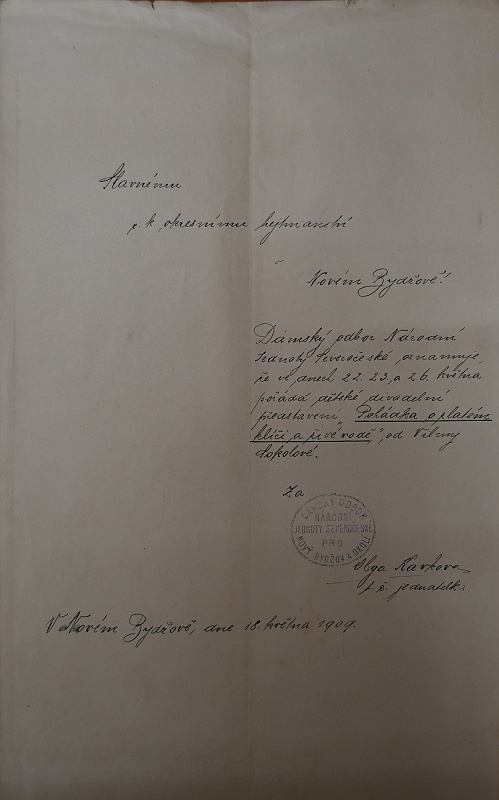 Slavnému
c. k. okresnímu hejtmanství
v
Novém Bydžově!
Dámský odbor Národní
Jednoty Severočeské oznamuje,
že ve dnech 22. 23. a 26. května
pořádá dětské divadelní
představení „Pohádka o zlatém
klíči a živé vodě", od Vilmy
Sokolové.
Za
DÁMSKÝ ODBOR
NÁRODNÍ
JEDNOTY SEVEROČESKÉ
PRO
NOVÝ BYDŽOV A OKOLÍ
Olga
t. č. jednatelka.
V Novém Bydžově, dne 18. května 1909.